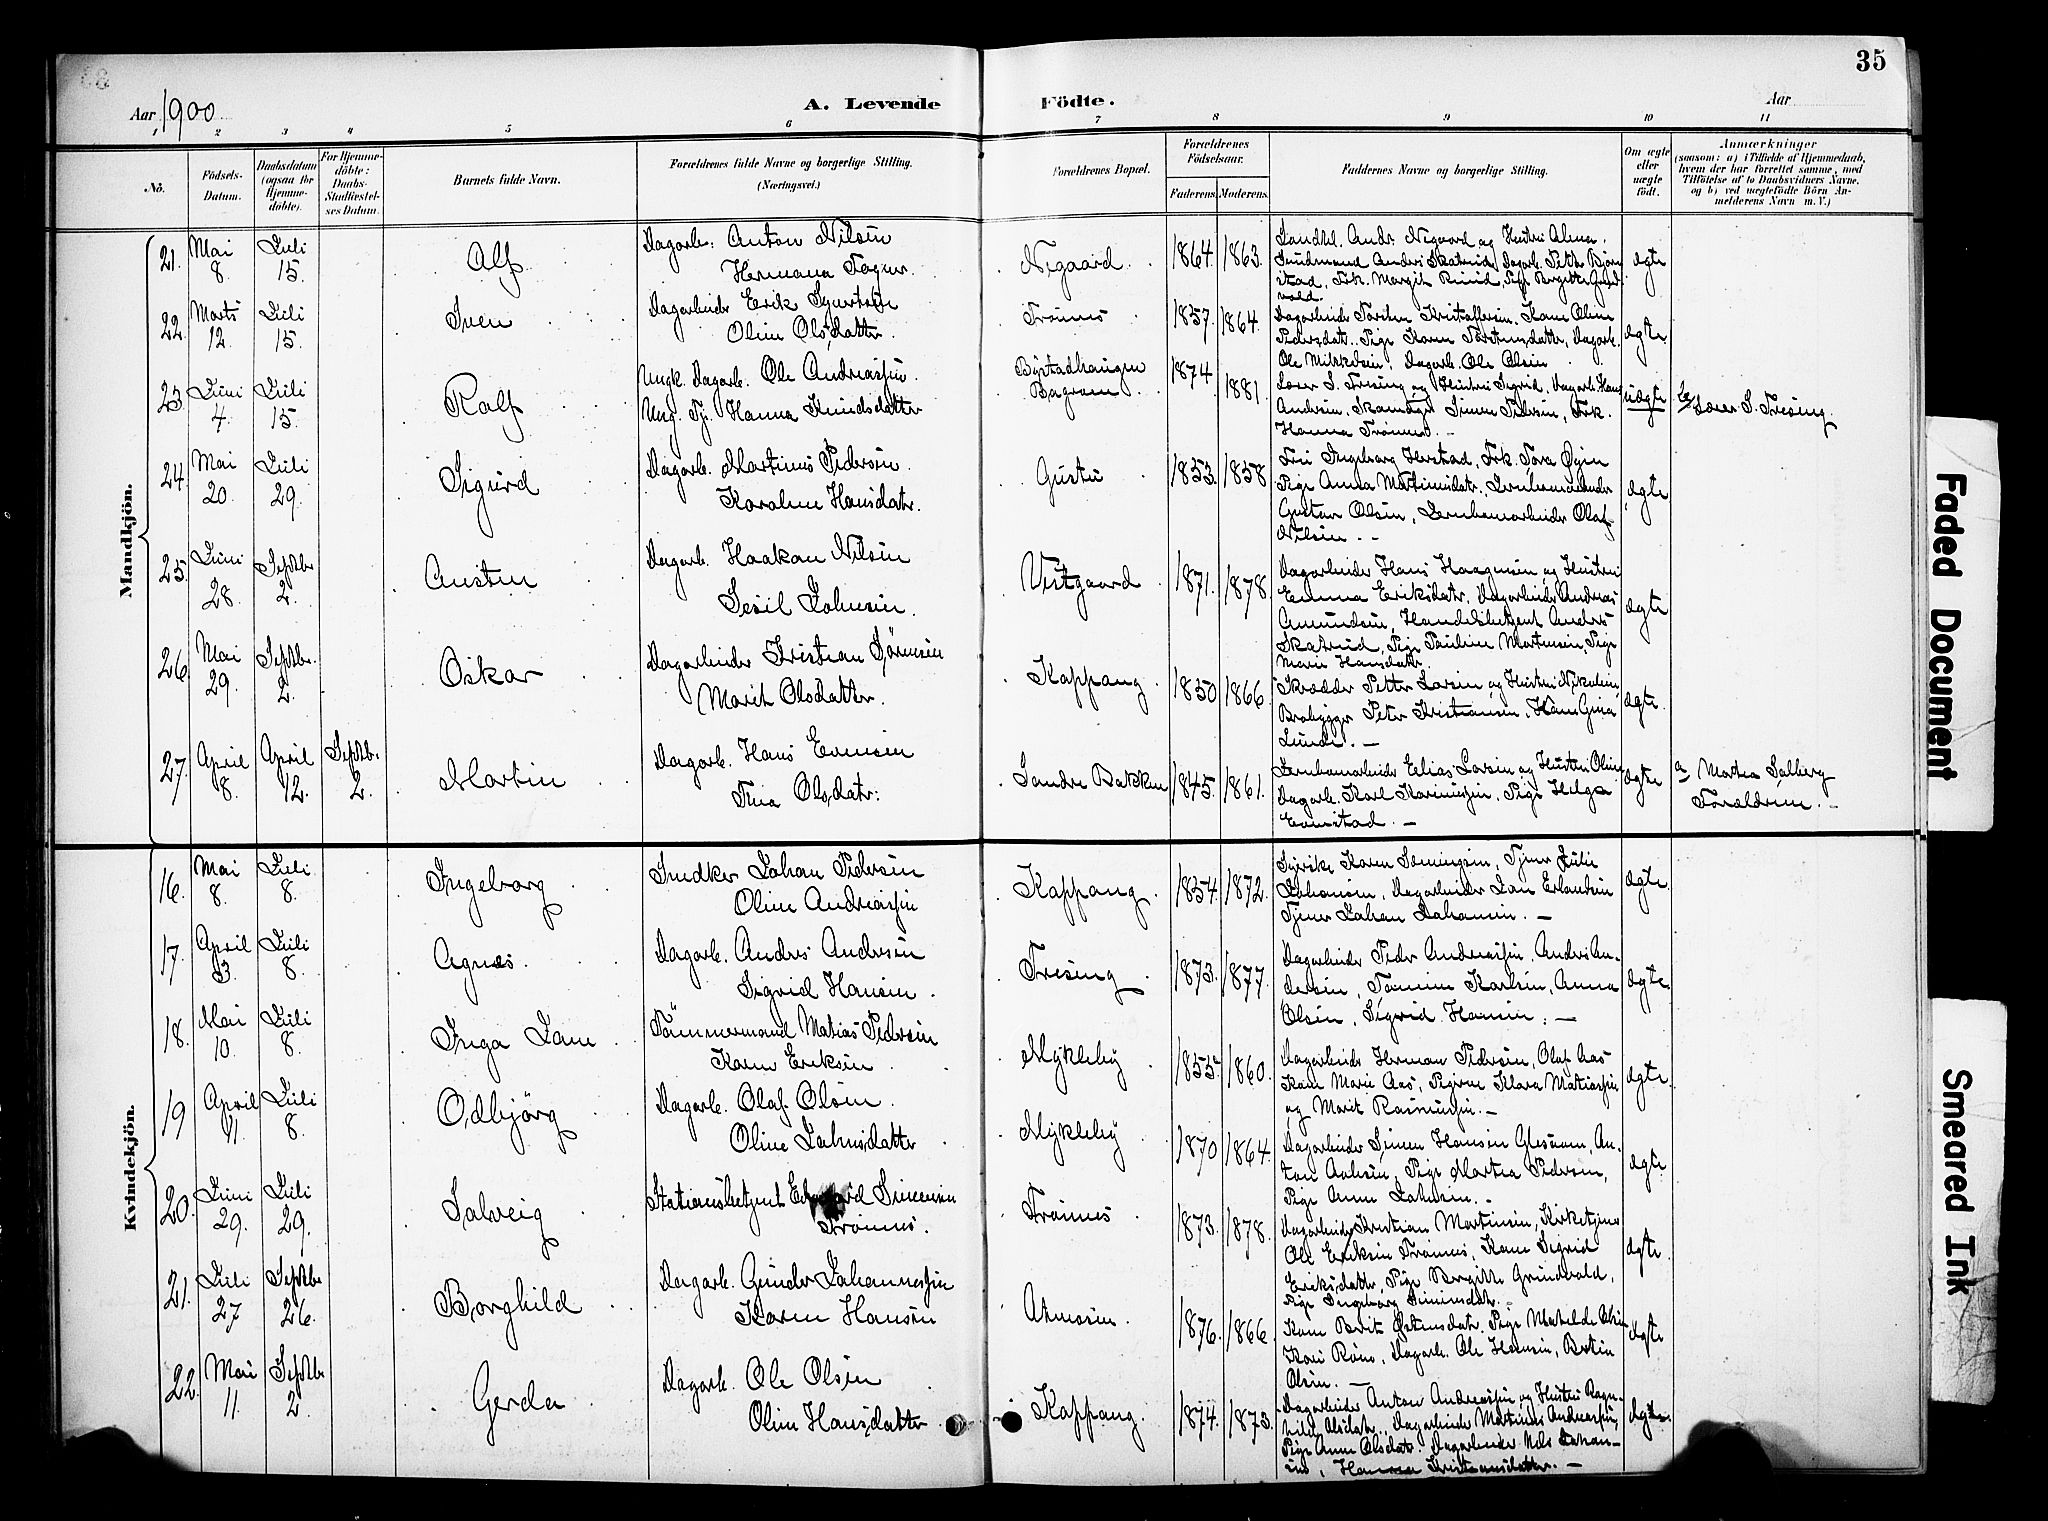 35
Aar 1900
A. Levende
Födte.
Aar
1 2 3 4 5 6 7 8 9 10 11
No.
Födsels-
Datum.
Daabsdatum
(ogsaa for
Hjemme-
döbte).
For Hjemme-
döbte:
Daabs-
Stadfæstel-
ses Datum.
Barnets fulde Navn.
Forældrenes fulde Navne og borgerlige Stilling.
(Næringsvei.)
Forældrenes Bopæl.
Forældrenes
Födselsaar.
Faderens.
Moderens.
Faddernes Navne og borgerlige Stilling.
Om ægte
eller
uægte
födt.
Anmærkninger
(saasom: a) i Tilfælde af Hjemmedaab,
hvem der har forrettet samme, med
Tilföielse af to Daabsvidners Navne,
og b) ved uægtefödte Börn An-
melderens Navn m. V.)
Mandkjön.
21. Mai 8 Juli 15. Alf
Dagarb. Anton Nilsen
Hermana
Nygaard 1864 1863.
og Hustru Alma.
ægte
22. Marts 12. Juli 15. Iven
Dagarbeider Erik
Oline Olsdatter.
Trønnes 1857. 1864.
Dagarbeider Torsten Kristoffersen. Kone Oline
Pedersdatr., Pige Karen Torstensdatter, Dagarb.
Ole Dagarb. Ole Olsen
ægte
23. Juni 4. Juli 15. Ralf
Ungk. Dagarb. Ole Andreassen.
Ung. Tj. Hanna Knudsdatter
1874 1881.
Lærer S. Tresing og Hustru Sigrid, Dagarb. Hans
Andersen, Simen Pedersen, Frk.
Hanna Trønnes. –
uægte
Lærer S. Tresing.
24. Mai 20. Juli 29. Sigurd
Dagarb. Martinus Pedersen.
Karoline Hansdatr.
Gustu 1853. 1858
Fru Ingeborg Frk. Tora
Pige Anna Martinusdatr., Jernbanearbeider
Gustav Olsen, Jernbanearbeider Olaf
Nilsen. –
ægte
25. Juni 28. Septbr. 2. Austen
Dagarb. Haakon Nilsen
Sesil Johnsen.
Vestgaard 1871. 1878.
Dagarbeider Hans Haagensen og Hustru
Emma Eriksdatr., Dagarbeider Andreas
Amundsen, Handelsbetjent Anders
Skatrud, Pige Pauline Martinsen, Pige
Marie Hansdatr.
ægte
26. Mai 29. Septbr. 2. Oskar
Dagarbeider Kristian Sørensen
Marit Olsdatter.
Koppang 1850 1866
Skrædder Petter Larsen og Hustru Nikoline,
Peter Kristiansen, Kone Gina
Lunde. –
ægte.
27. April 8. April 12. Septbr. 2. Martin
Dagarb. Hans Evensen
Tina Olsdatr:
Søndre Bakken 1845. 1861.
Jernbanearbeider Elias Larsen og Hustru Oline
Dagarb. Karl Karinussen, Pige Helga
Evenstad. –
ægte
a, Martea Solberg
Forældrene. –
Kvindekjön.
16. Mai 8. Juli 8. Ingeborg
Snedker Johan Pedersen
Oline Andreassen
Koppang. 1854. 1872.
Karen Tjener Julie
Johansen, Dagarbeider Jon Erlandsen
Tjener Johan Johansen. –
ægte.
17. April 3. Juli 8. Agnes.
Dagarb. Anders Andersen
Sigrid Hansen.
Tresing 1873. 1877.
Dagarbeider Peder Andreassen, Anders An-
dersen, Karlsen, Anna
Olsen, Sigrid Hansen. –
ægte.
18. Mai 10. Juli 8. Inga Jane
Tømmermand Matias Pedersen
Karen Eriksen
Mykleby 1855. 1860.
Dagarbeider Herman Pedersen, Olaf Aas
Kone Marie Aas, Pigerne Klara Matiassen
og Marit Rasmussen. –
ægte.
19 April 11. Juli 8. Odbjørg
Dagarb. Olaf Olsen.
Oline Johnsdatter
Mykleby 1870 1864.
Dagarbeider Simen Hansen An-
ton Pige Martea Pedersen,
Pige Anne Johnsen. –
ægte.
20. Juni 29. Juli 29. Solveig
Stationsbetjent Edvard Simensen
Trønnes.
Trønnes 1873. 1878.
Dagarbeider Kristian Martinsen, Kirketjener
Ole Eriksen Trønnes, Kone Sigrid
Eriksdatter, Pige Bergitte Grundvold,
Pige Ingeborg Simensdatr. –
ægte.
21. Juli 27 Septbr 26. Borghild
Dagarb. Gunder Johannessen
Karen Hansen
1876. 1866.
Kone Berit Østensdatr. Pige Mathilde Olsen
Kari Røne, Dagarb. Ole Hansen,
Olsen. –
ægte
22. Mai 11. Septbr 2. Gerda
Dagarb. Ole Olsen
Oline Hansdatter
Koppang. 1874. 1873.
Dagarbeider Anton Andreassen og Hustru Ragn-
hild Olsdatr., Dagarbeider Martinus Andreassen,
Pige Anne Olsdatr. Dagarbeider Nils Johan-
sen, Hanna Kristiansdatter. –
ægte.
Faded Document
Smeared Ink